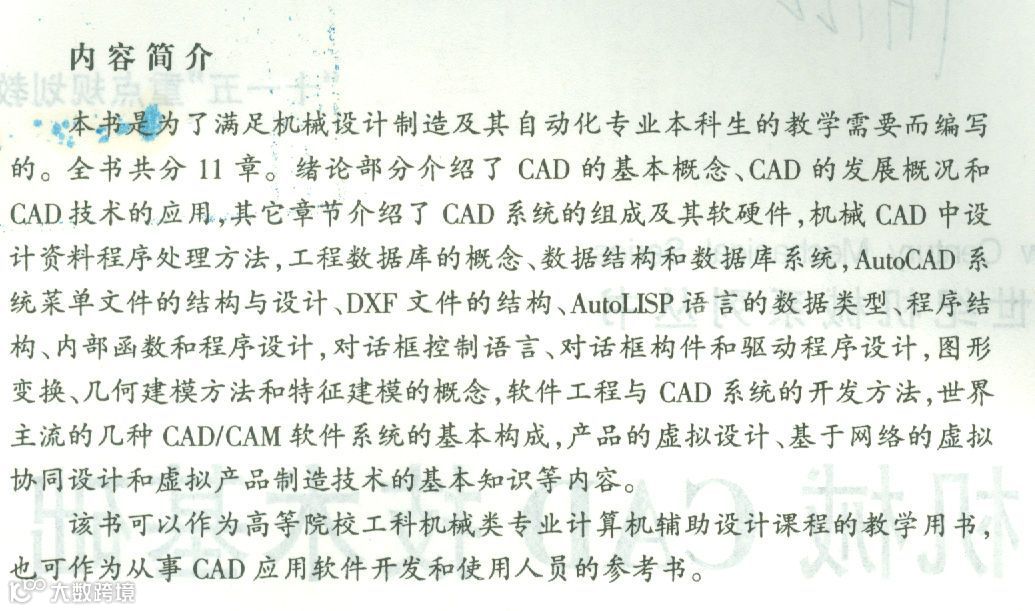 内容简介
本书是为了满足机械设计制造及其自动化专业本科生的教学需要而编写
的。全书共分 11 章。绪论部分介绍了 CAD 的基本概念、CAD 的发展概况和
CAD 技术的应用,其它章节介绍了 CAD 系统的组成及其软硬件,机械 CAD 中设
计资料程序处理方法,工程数据库的概念、数据结构和数据库系统,AutoCAD 系
统菜单文件的结构与设计、DXF 文件的结构、AutoLISP 语言的数据类型、程序结
构、内部函数和程序设计,对话框控制语言、对话框构件和驱动程序设计,图形
变换、几何建模方法和特征建模的概念,软件工程与 CAD 系统的开发方法,世界
主流的几种 CAD/CAM 软件系统的基本构成,产品的虚拟设计、基于网络的虚拟
协同设计和虚拟产品制造技术的基本知识等内容。
该书可以作为高等院校工科机械类专业计算机辅助设计课程的教学用书,
也可作为从事 CAD 应用软件开发和使用人员的参考书。
大数跨境
"十一五"重点规划教
机械 CAD 技术基础